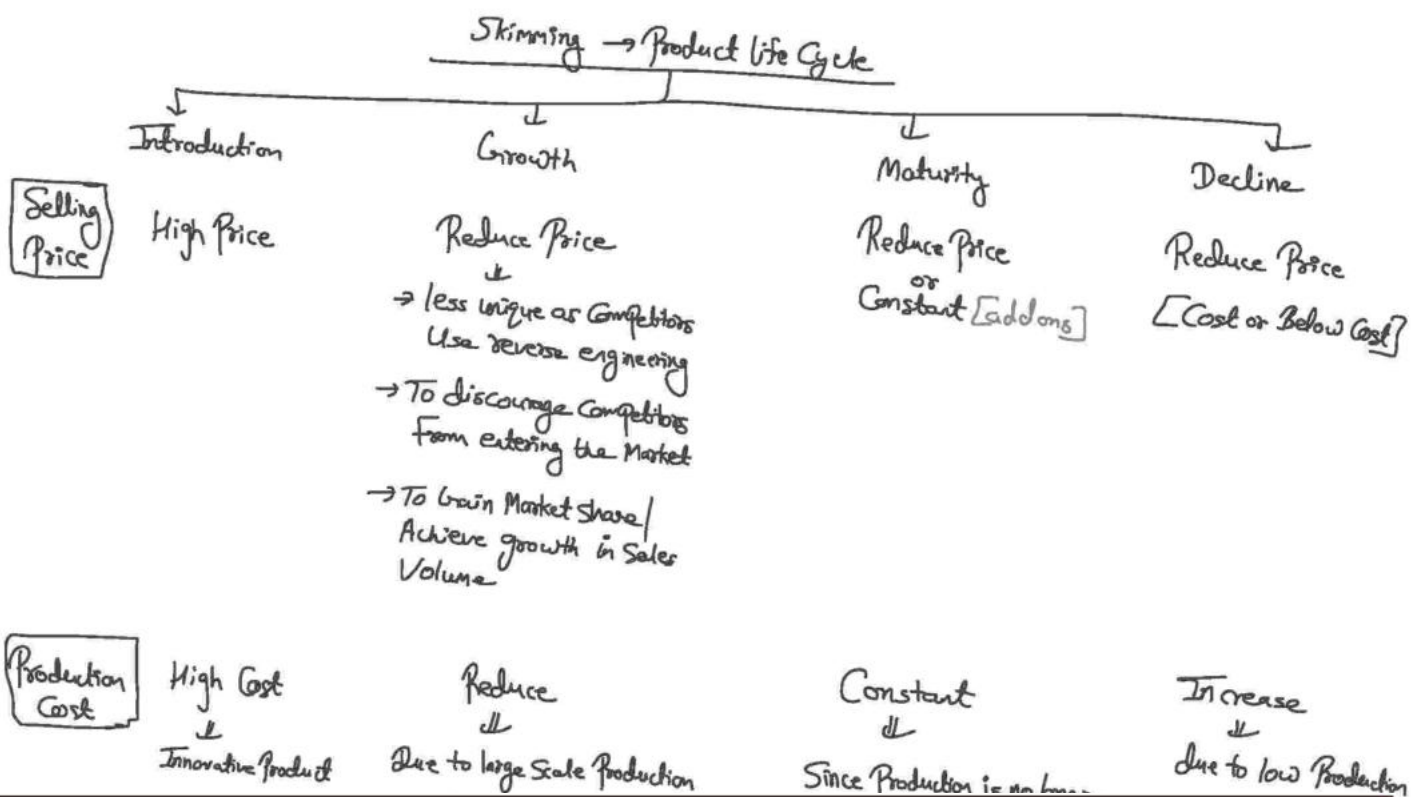 Skimming → Product life Cycle
Introduction
Growth
Maturity
Decline
Selling
Price
High Price
Reduce Price
→ less unique as Competitors
Use reverse engineering
→ To discourage Competitors
From entering the Market
→ To Gain Market Share/
Achieve growth in Sales
Volume
Reduce Price
or
Constant [add ons]
Reduce Price
[Cost or Below Cost]
Production
Cost
High Cost
Innovative Product
Reduce
Due to large Scale Production
Constant
Since Production is no
Increase
due to low Production